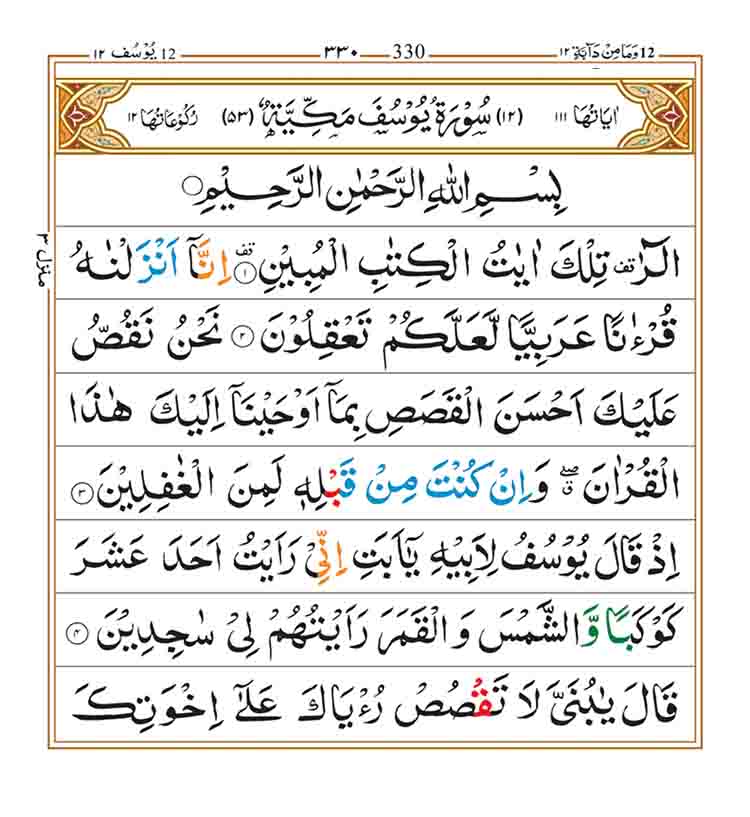 ١٢ وَمَا مِنْ دَآبَّةٍ 12 ٣٣٠ 330 ١٢ يُوْسُف 12
اٰيَاتُهَا ١١١ (١٢) سُوْرَةُ يُوْسُفَ مَكِّيَّةٌ (٥٣) رُكُوْعَاتُهَا ١٢
بِسْمِ اللّٰهِ الرَّحْمٰنِ الرَّحِيْمِ
الٓرٰ تف تِلْكَ اٰيٰتُ الْكِتٰبِ الْمُبِيْنِ ١ تف اِنَّاۤ اَنْزَلْنٰهُ
قُرْءٰنًا عَرَبِيًّا لَّعَلَّكُمْ تَعْقِلُوْنَ ٢ نَحْنُ نَقُصُّ
عَلَيْكَ اَحْسَنَ الْقَصَصِ بِمَاۤ اَوْحَيْنَاۤ اِلَيْكَ هٰذَا
الْقُرْاٰنَ ۖ ق وَاِنْ كُنْتَ مِنْ قَبْلِهٖ لَمِنَ الْغٰفِلِيْنَ ٣
اِذْ قَالَ يُوْسُفُ لِاَبِيْهِ يٰۤاَبَتِ اِنِّيْ رَاَيْتُ اَحَدَ عَشَرَ
كَوْكَبًا وَّالشَّمْسَ وَالْقَمَرَ رَاَيْتُهُمْ لِيْ سٰجِدِيْنَ ٤
قَالَ يٰبُنَيَّ لَا تَقْصُصْ رُءْيَاكَ عَلٰۤى اِخْوَتِكَ
منزل ٣